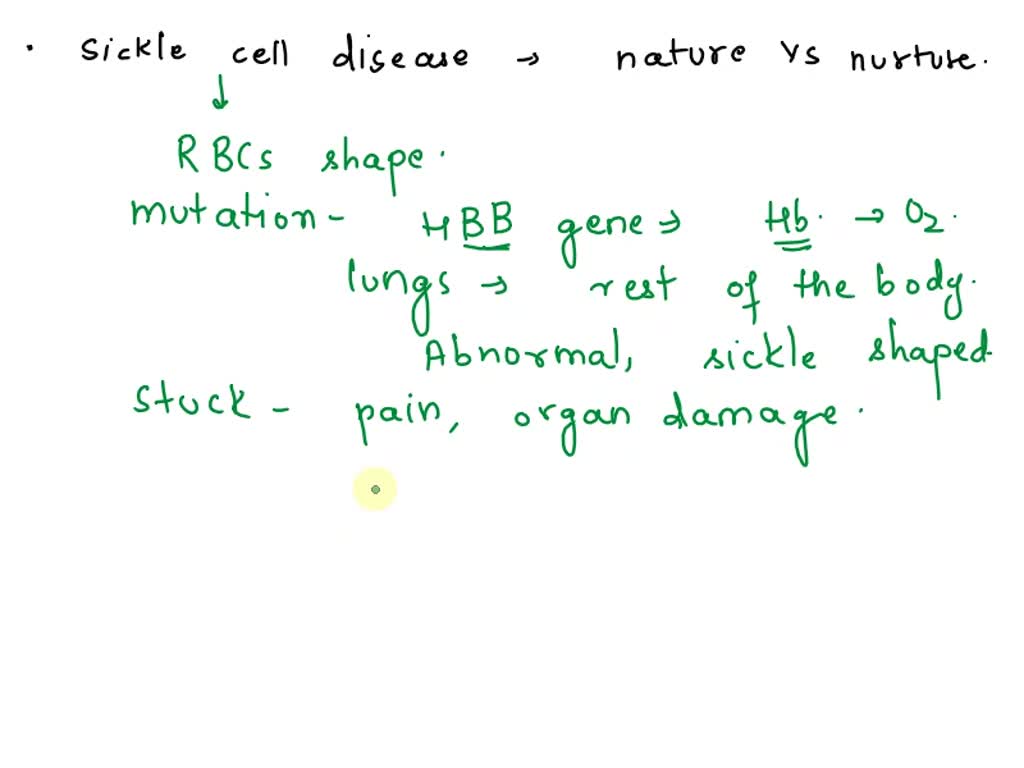 . sickle cell disease → nature vs nurture.
↓
RBCs shape.
mutation - HBB gene → Hb. → O2.
lungs → rest of the body.
Abnormal, sickle shaped
Stuck - pain, organ damage.